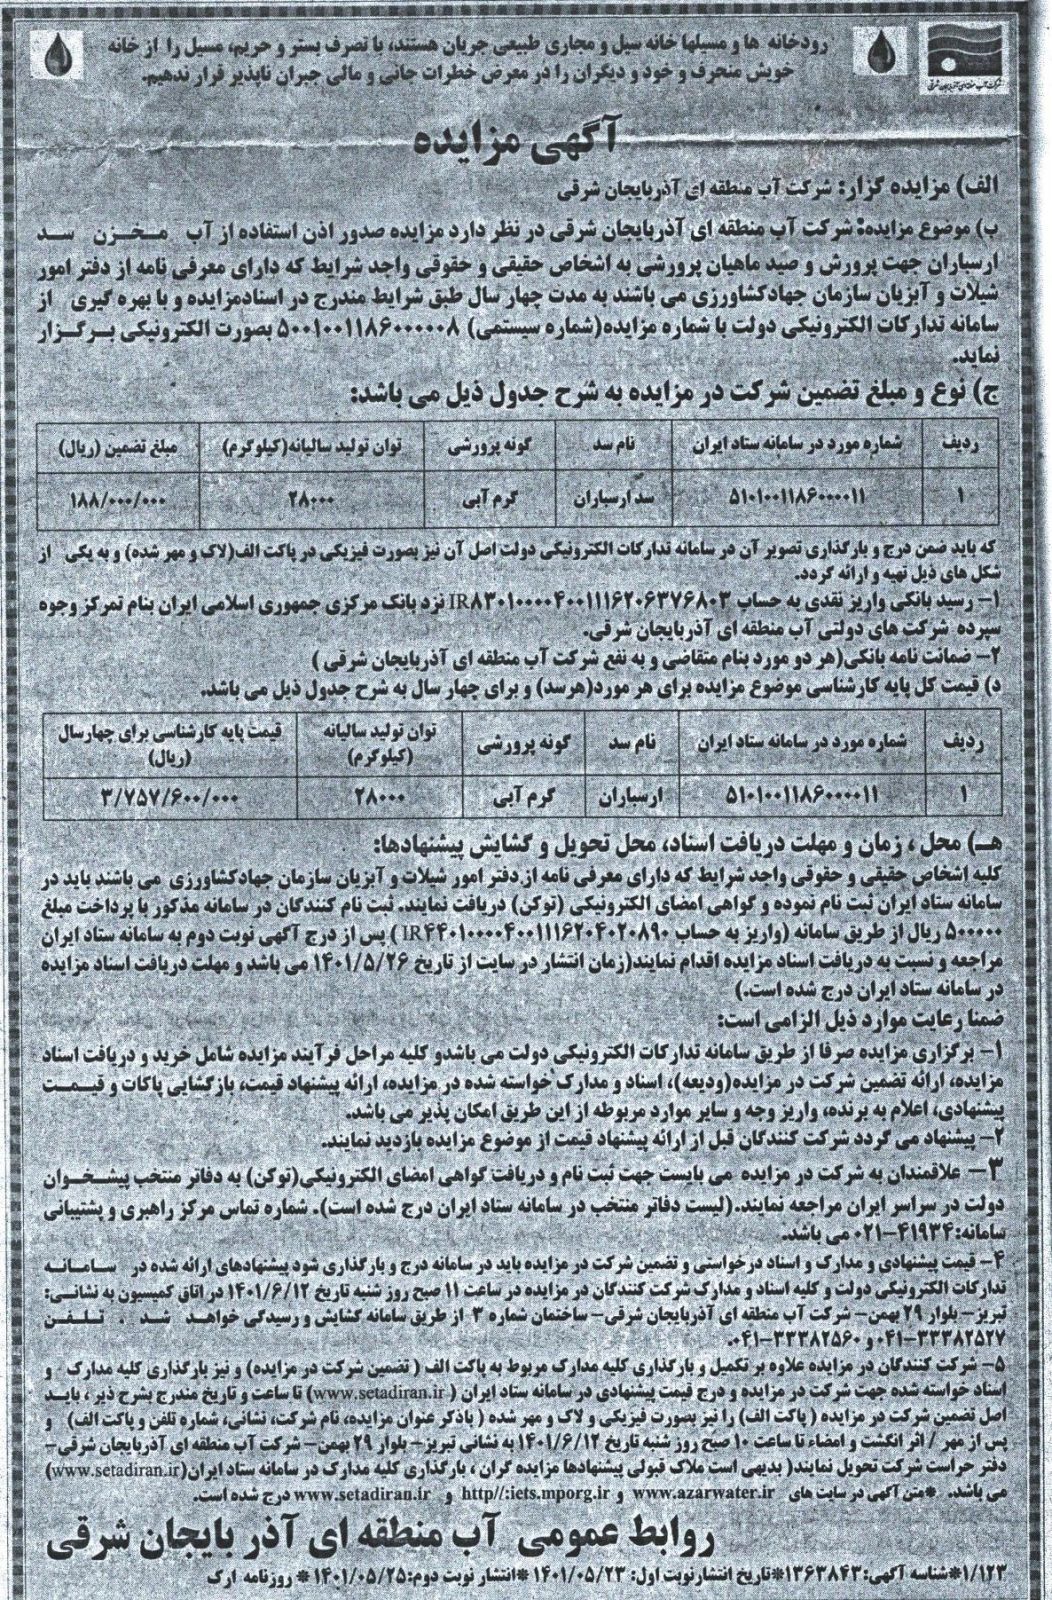 رودخانه ها و مسیلها خانه سیل و مجاری طبیعی جریان هستند، با تصرف بستر و حریم، مسیل را از خانه
خویش منحرف و خود و دیگران را در معرض خطرات جانی و مالی جبران ناپذیر قرار ندهیم.
آگهی مزایده
الف) مزایده گزار: شرکت آب منطقه ای آذربایجان شرقی
ب) موضوع مزایده: شرکت آب منطقه ای آذربایجان شرقی در نظر دارد مزایده صدور اذن استفاده از آب مخزن سد
ارسباران جهت پرورش و صید ماهیان پرورشی به اشخاص حقیقی و حقوقی واجد شرایط که دارای معرفی نامه از دفتر امور
شیلات و آبزیان سازمان جهادکشاورزی می باشند به مدت چهار سال طبق شرایط مندرج در اسنادمزایده و با بهره گیری از
سامانه تدارکات الکترونیکی دولت با شماره مزایده(شماره سیستمی) ۵۰۰۱۰۰۱۱۸۶۰۰۰۰۰۸ بصورت الکترونیکی برگزار
نماید.
ج) نوع و مبلغ تضمین شرکت در مزایده به شرح جدول ذیل می باشد:
ردیف شماره مورد در سامانه ستاد ایران نام سد گونه پرورشی توان تولید سالیانه(کیلوگرم) مبلغ تضمین (ریال)
۱ ۵۱۰۱۰۰۱۱۸۶۰۰۰۰۱۱ سد ارسباران گرم آبی ۲۸۰۰۰ ۱۸۸/۰۰۰/۰۰۰
که باید ضمن درج و بارگذاری تصویر آن در سامانه تدارکات الکترونیکی دولت اصل آن نیز بصورت فیزیکی در پاکت الف(لاک و مهر شده) و به یکی از
شکل های ذیل تهیه و ارائه گردد.
۱- رسید بانکی واریز نقدی به حساب IR۸۳۰۱۰۰۰۰۴۰۰۱۱۱۶۲۰۶۳۷۶۸۰۳ نزد بانک مرکزی جمهوری اسلامی ایران بنام تمرکز وجوه
سپرده شرکت های دولتی آب منطقه ای آذربایجان شرقی.
۲- ضمانت نامه بانکی(هر دو مورد بنام متقاضی و به نفع شرکت آب منطقه ای آذربایجان شرقی )
د) قیمت کل پایه کارشناسی موضوع مزایده برای هر مورد(هرسد) و برای چهار سال به شرح جدول ذیل می باشد.
ردیف شماره مورد در سامانه ستاد ایران نام سد گونه پرورشی توان تولید سالیانه (کیلوگرم) قیمت پایه کارشناسی برای چهارسال (ریال)
۱ ۵۱۰۱۰۰۱۱۸۶۰۰۰۰۱۱ ارسباران گرم آبی ۲۸۰۰۰ ۳/۷۵۷/۶۰۰/۰۰۰
هـ) محل ، زمان و مهلت دریافت اسناد، محل تحویل و گشایش پیشنهادها:
کلیه اشخاص حقیقی و حقوقی واجد شرایط که دارای معرفی نامه از دفتر امور شیلات و آبزیان سازمان جهادکشاورزی می باشند باید در
سامانه ستاد ایران ثبت نام نموده و گواهی امضای الکترونیکی (توکن) دریافت نمایند. ثبت نام کنندگان در سامانه مذکور با پرداخت مبلغ
۵۰۰۰۰۰ ریال از طریق سامانه (واریز به حساب IR۴۴۰۱۰۰۰۰۴۰۰۱۱۱۶۲۰۴۰۲۰۸۹۰ ) پس از درج آگهی نوبت دوم به سامانه ستاد ایران
مراجعه و نسبت به دریافت اسناد مزایده اقدام نمایند(زمان انتشار در سایت از تاریخ ۱۴۰۱/۵/۲۶ می باشد و مهلت دریافت اسناد مزایده
در سامانه ستاد ایران درج شده است.)
ضمنا رعایت موارد ذیل الزامی است:
۱- برگزاری مزایده صرفا از طریق سامانه تدارکات الکترونیکی دولت می باشدو کلیه مراحل فرآیند مزایده شامل خرید و دریافت اسناد
مزایده، ارائه تضمین شرکت در مزایده(ودیعه)، اسناد و مدارک خواسته شده در مزایده، ارائه پیشنهاد قیمت، بازگشایی پاکات و قیمت
پیشنهادی، اعلام به برنده، واریز وجه و سایر موارد مربوطه از این طریق امکان پذیر می باشد.
۲- پیشنهاد می گردد شرکت کنندگان قبل از ارائه پیشنهاد قیمت از موضوع مزایده بازدید نمایند.
۳- علاقمندان به شرکت در مزایده می بایست جهت ثبت نام و دریافت گواهی امضای الکترونیکی(توکن) به دفاتر منتخب پیشخوان
دولت در سراسر ایران مراجعه نمایند.(لیست دفاتر منتخب در سامانه ستاد ایران درج شده است). شماره تماس مرکز راهبری و پشتیبانی
سامانه: ۴۱۹۳۴-۰۲۱ می باشد.
۴- قیمت پیشنهادی و مدارک و اسناد درخواستی و تضمین شرکت در مزایده باید در سامانه درج و بارگذاری شود پیشنهادهای ارائه شده در سامانه
تدارکات الکترونیکی دولت و کلیه اسناد و مدارک شرکت کنندگان در مزایده در ساعت ۱۱ صبح روز شنبه تاریخ ۱۴۰۱/۶/۱۲ در اتاق کمیسیون به نشانی:
تبریز- بلوار ۲۹ بهمن- شرکت آب منطقه ای آذربایجان شرقی- ساختمان شماره ۳ از طریق سامانه گشایش و رسیدگی خواهد شد . تلفن
۳۳۳۸۲۵۲۷-۰۴۱ و ۳۳۳۸۲۵۶۰-۰۴۱.
۵- شرکت کنندگان در مزایده علاوه بر تکمیل و بارگذاری کلیه مدارک مربوط به پاکت الف ( تضمین شرکت در مزایده) و نیز بارگذاری کلیه مدارک و
اسناد خواسته شده جهت شرکت در مزایده و درج قیمت پیشنهادی در سامانه ستاد ایران ( www.setadiran.ir) تا ساعت و تاریخ مندرج بشرح ذیر ، باید
اصل تضمین شرکت در مزایده ( پاکت الف) را نیز بصورت فیزیکی و لاک و مهر شده ( باذکر عنوان مزایده، نام شرکت، نشانی، شماره تلفن و پاکت الف) و
پس از مهر / اثر انگشت و امضاء تا ساعت ۱۰ صبح روز شنبه تاریخ ۱۴۰۱/۶/۱۲ به نشانی تبریز- بلوار ۲۹ بهمن- شرکت آب منطقه ای آذربایجان شرقی-
دفتر حراست شرکت تحویل نمایند( بدیهی است ملاک قبولی پیشنهادها مزایده گران ، بارگذاری کلیه مدارک در سامانه ستاد ایران(www.setadiran.ir)
می باشد. *متن آگهی در سایت های www.azarwater.ir و http//:iets.mporg.ir و www.setadiran.ir درج شده است.
روابط عمومی آب منطقه ای آذربایجان شرقی
۱/۱۲۳*شناسه آگهی: ۱۳۶۳۸۴۳*تاریخ انتشارنوبت اول: ۱۴۰۱/۰۵/۲۳ *انتشار نوبت دوم: ۱۴۰۱/۰۵/۲۵ * روزنامه ارک